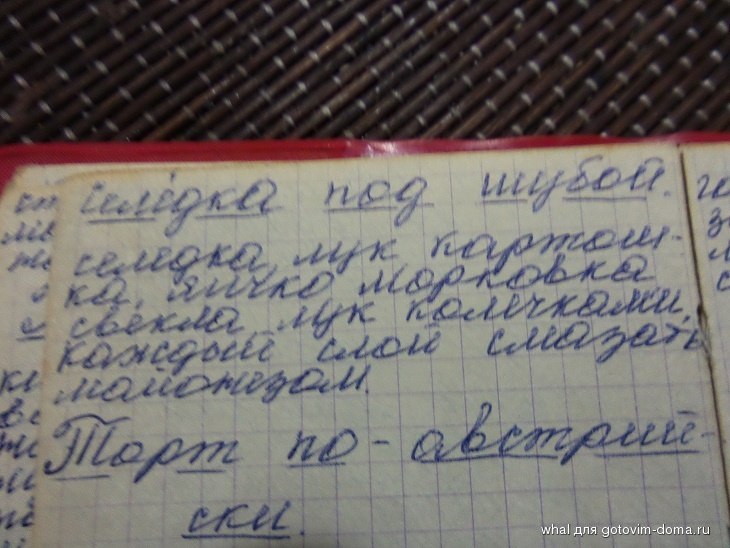 Селёдка под шубой.
селедка, лук картош-
ка, яичко морковка
свекла, лук колечками,
каждый слой смазать
майонезом.
Торт по-австрий-
ски.
whal для gotovim-doma.ru